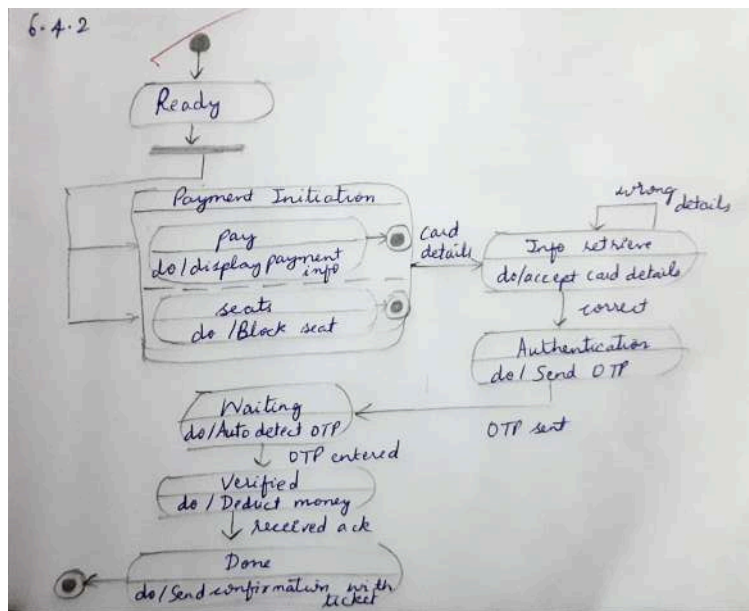 6.4.2
Ready
Payment Initiation
pay
do/display payment
info
seats
do/Block seat
card
details
wrong
details
Info retrieve
do/accept card details
correct
Authentication
do/Send OTP
OTP sent
Waiting
do/Auto detect OTP
OTP entered
Verified
do/Deduct money
received ack
Done
do/Send confirmation with
ticket